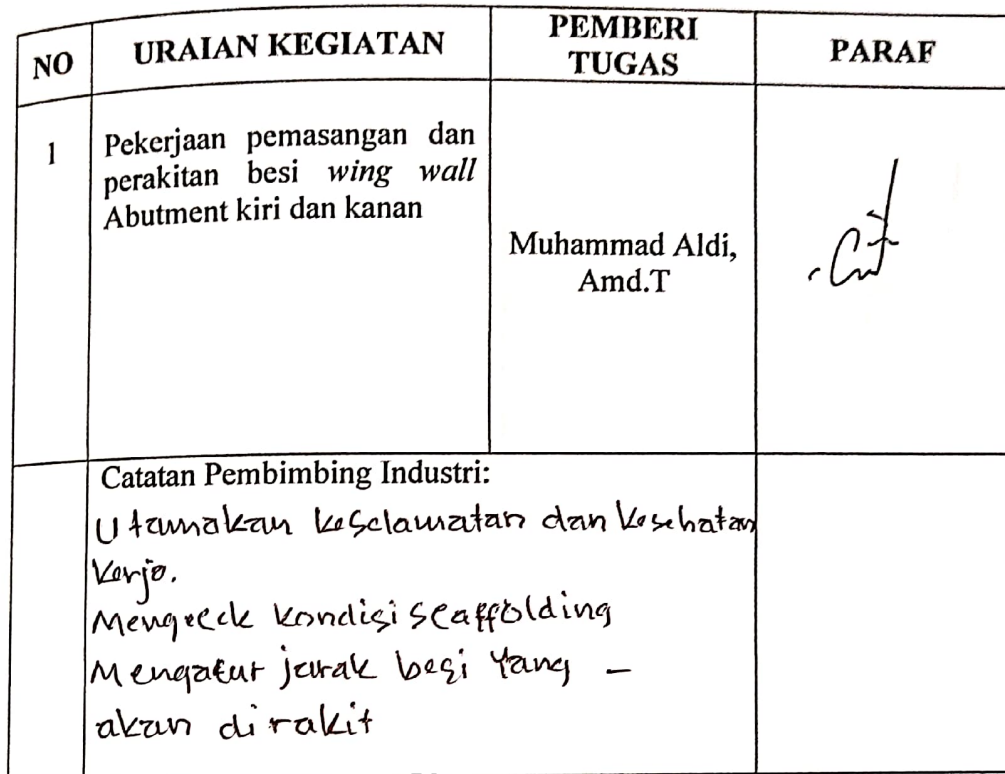 NO
URAIAN KEGIATAN
PEMBERI
TUGAS
PARAF
1
Pekerjaan pemasangan dan
perakitan besi wing wall
Abutment kiri dan kanan
Muhammad Aldi,
Amd.T
Catatan Pembimbing Industri:
Utamakan keselamatan dan kesehatan
kerja.
Mengecek kondisi scaffolding
Mengatur jarak besi yang -
akan dirakit